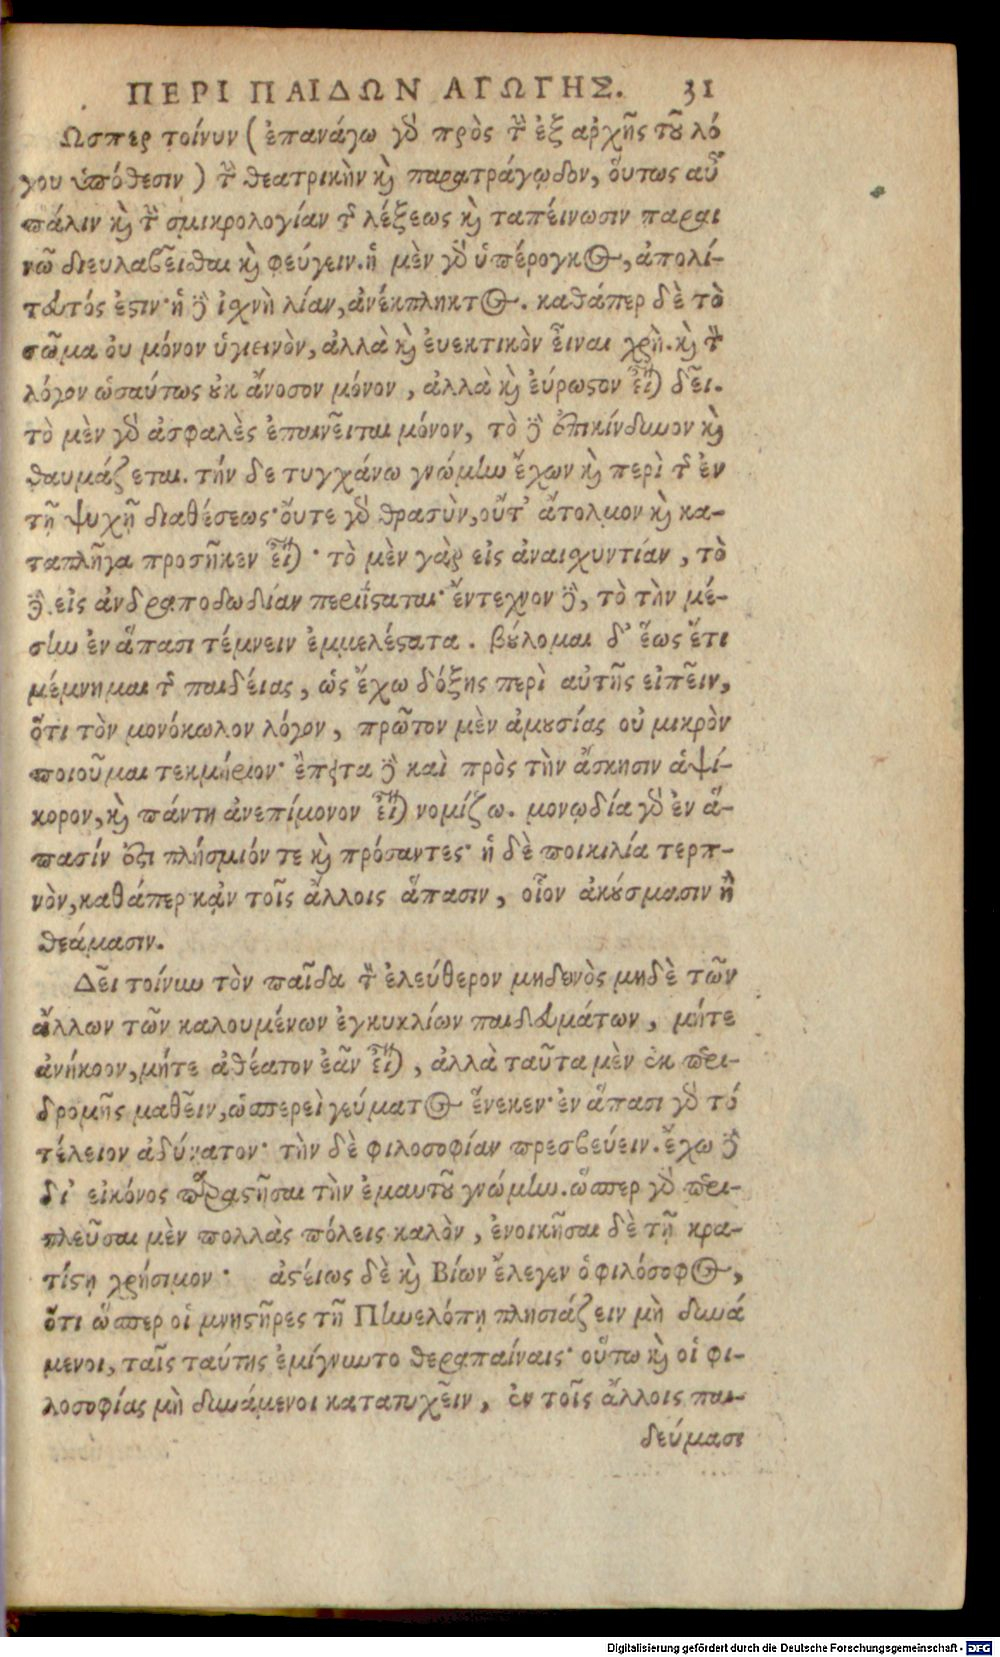 ΠΕΡΙ ΠΑΙΔΩΝ ΑΓΩΓΗΣ. 31
Ωσπερ τοίνυν (ἐπανάγω γδ πρὸς τ ἐξ ἀρχῆς τȣ λό
γου ὑπόθεσιν) τ θεατρικὴν ϗ παρατράγῳδον, ὅυτως αὖ
πάλιν ϗ τ σμικρολογίαν τ λέξεως ϗ ταπείνωσιν παραι
νῶ διευλαβεῖσθαι ϗ φεύγειν. ἡ μὲν γδ ὑπέρογκος, ἀπολί-
τευτός ἐϛιν· ἡ δ ἰχνὴ λίαν, ἀνέκπληκτος. καθάπερ δὲ τὸ
σῶμα ὀυ μόνον ὑγιεινὸν, ἀλλὰ ϗ ἐυεκτικὸν εἶναι χρὴ. ϗ τ
λόγον ὡσαύτως ȣκ ἄνοσον μόνον, ἀλλὰ ϗ ἐύρωϛον εἶ) δεῖ.
τὸ μὲν γδ ἀσφαλὲς ἐπαινεῖται μόνον, τὸ δ ἐπικίνδυνον ϗ
θαυμάζεται. τήν δε τυγχάνω γνώμην ἔχων ϗ περὶ τ ἐν
τῇ ψυχῇ διαθέσεως· ὄυτε γδ θρασὺν, οὔτ' ἄτολμον ϗ κα-
ταπλῆγα προσῆκεν εἶ)· τὸ μὲν γὰρ εἰς ἀναισχυντίαν, τὸ
δ εἰς ἀνδραποδωδίαν περιίϛαται· ἔντεχνον δ, τὸ τὴν μέ-
σην ἐν ἅπασι τέμνειν ἐμμελέϛατα. βȣλομαι δ' ἕως ἔτι
μέμνημαι τ παιδείας, ὡς ἔχω δόξης περὶ αὐτῆς εἰπεῖν,
ὅτι τὸν μονόκωλον λόγον, πρῶτον μὲν ἀμȣσίας οὐ μικρὸν
ποιοῦμαι τεκμήριον· ἔπειτα δ καὶ πρὸς τὴν ἄσκησιν ἁψί-
κορον, ϗ πάντη ἀνεπίμονον εἶ) νομίζω. μονῳδία γδ ἐν ἅ-
πασίν ὅϛι πλήσμιόν τε ϗ πρόσαντες· ἡ δὲ ποικιλία τερπ-
νὸν, καθάπερ κᾀν τοῖς ἄλλοις ἅπασιν, οἷον ἀκȣσμασιν ἢ
θεάμασιν.
Δεῖ τοίνυν τὸν παῖδα τ ἐλεύθερον μηδενὸς μηδὲ τῶν
ἄλλων τῶν καλουμένων ἐγκυκλίων παιδευμάτων, μήτε
ἀνήκοον, μήτε ἀθέατον ἐᾶν εἶ), ἀλλὰ ταῦτα μὲν ἐκ περι-
δρομῆς μαθεῖν, ὡσπερεὶ γεύματος ἕνεκεν· ἐν ἅπασι γδ τό
τέλειον ἀδύνατον· τὴν δὲ φιλοσοφίαν πρεσβεύειν. ἔχω δ
δι' εἰκόνος παραϛῆσαι τὴν ἐμαυτȣ γνώμην. ὥσπερ γδ περι-
πλεῦσαι μὲν πολλὰς πόλεις καλὸν, ἐνοικῆσαι δὲ τῇ κρα-
τίϛῃ χρήσιμον· ἀϛείως δὲ ϗ Βίων ἔλεγεν ὁ φιλόσοφος,
ὅτι ὥσπερ οἱ μνηϛῆρες τῇ Πηνελόπῃ πλησιάζειν μὴ δυνά
μενοι, ταῖς ταύτης ἐμίγνυντο θεραπαίναις· οὕτω ϗ οἱ φι-
λοσοφίας μὴ δυνάμενοι κατατυχεῖν, ἐν τοῖς ἄλλοις παι-
δεύμασι
Digitalisierung gefördert durch die Deutsche Forschungsgemeinschaft - DFG